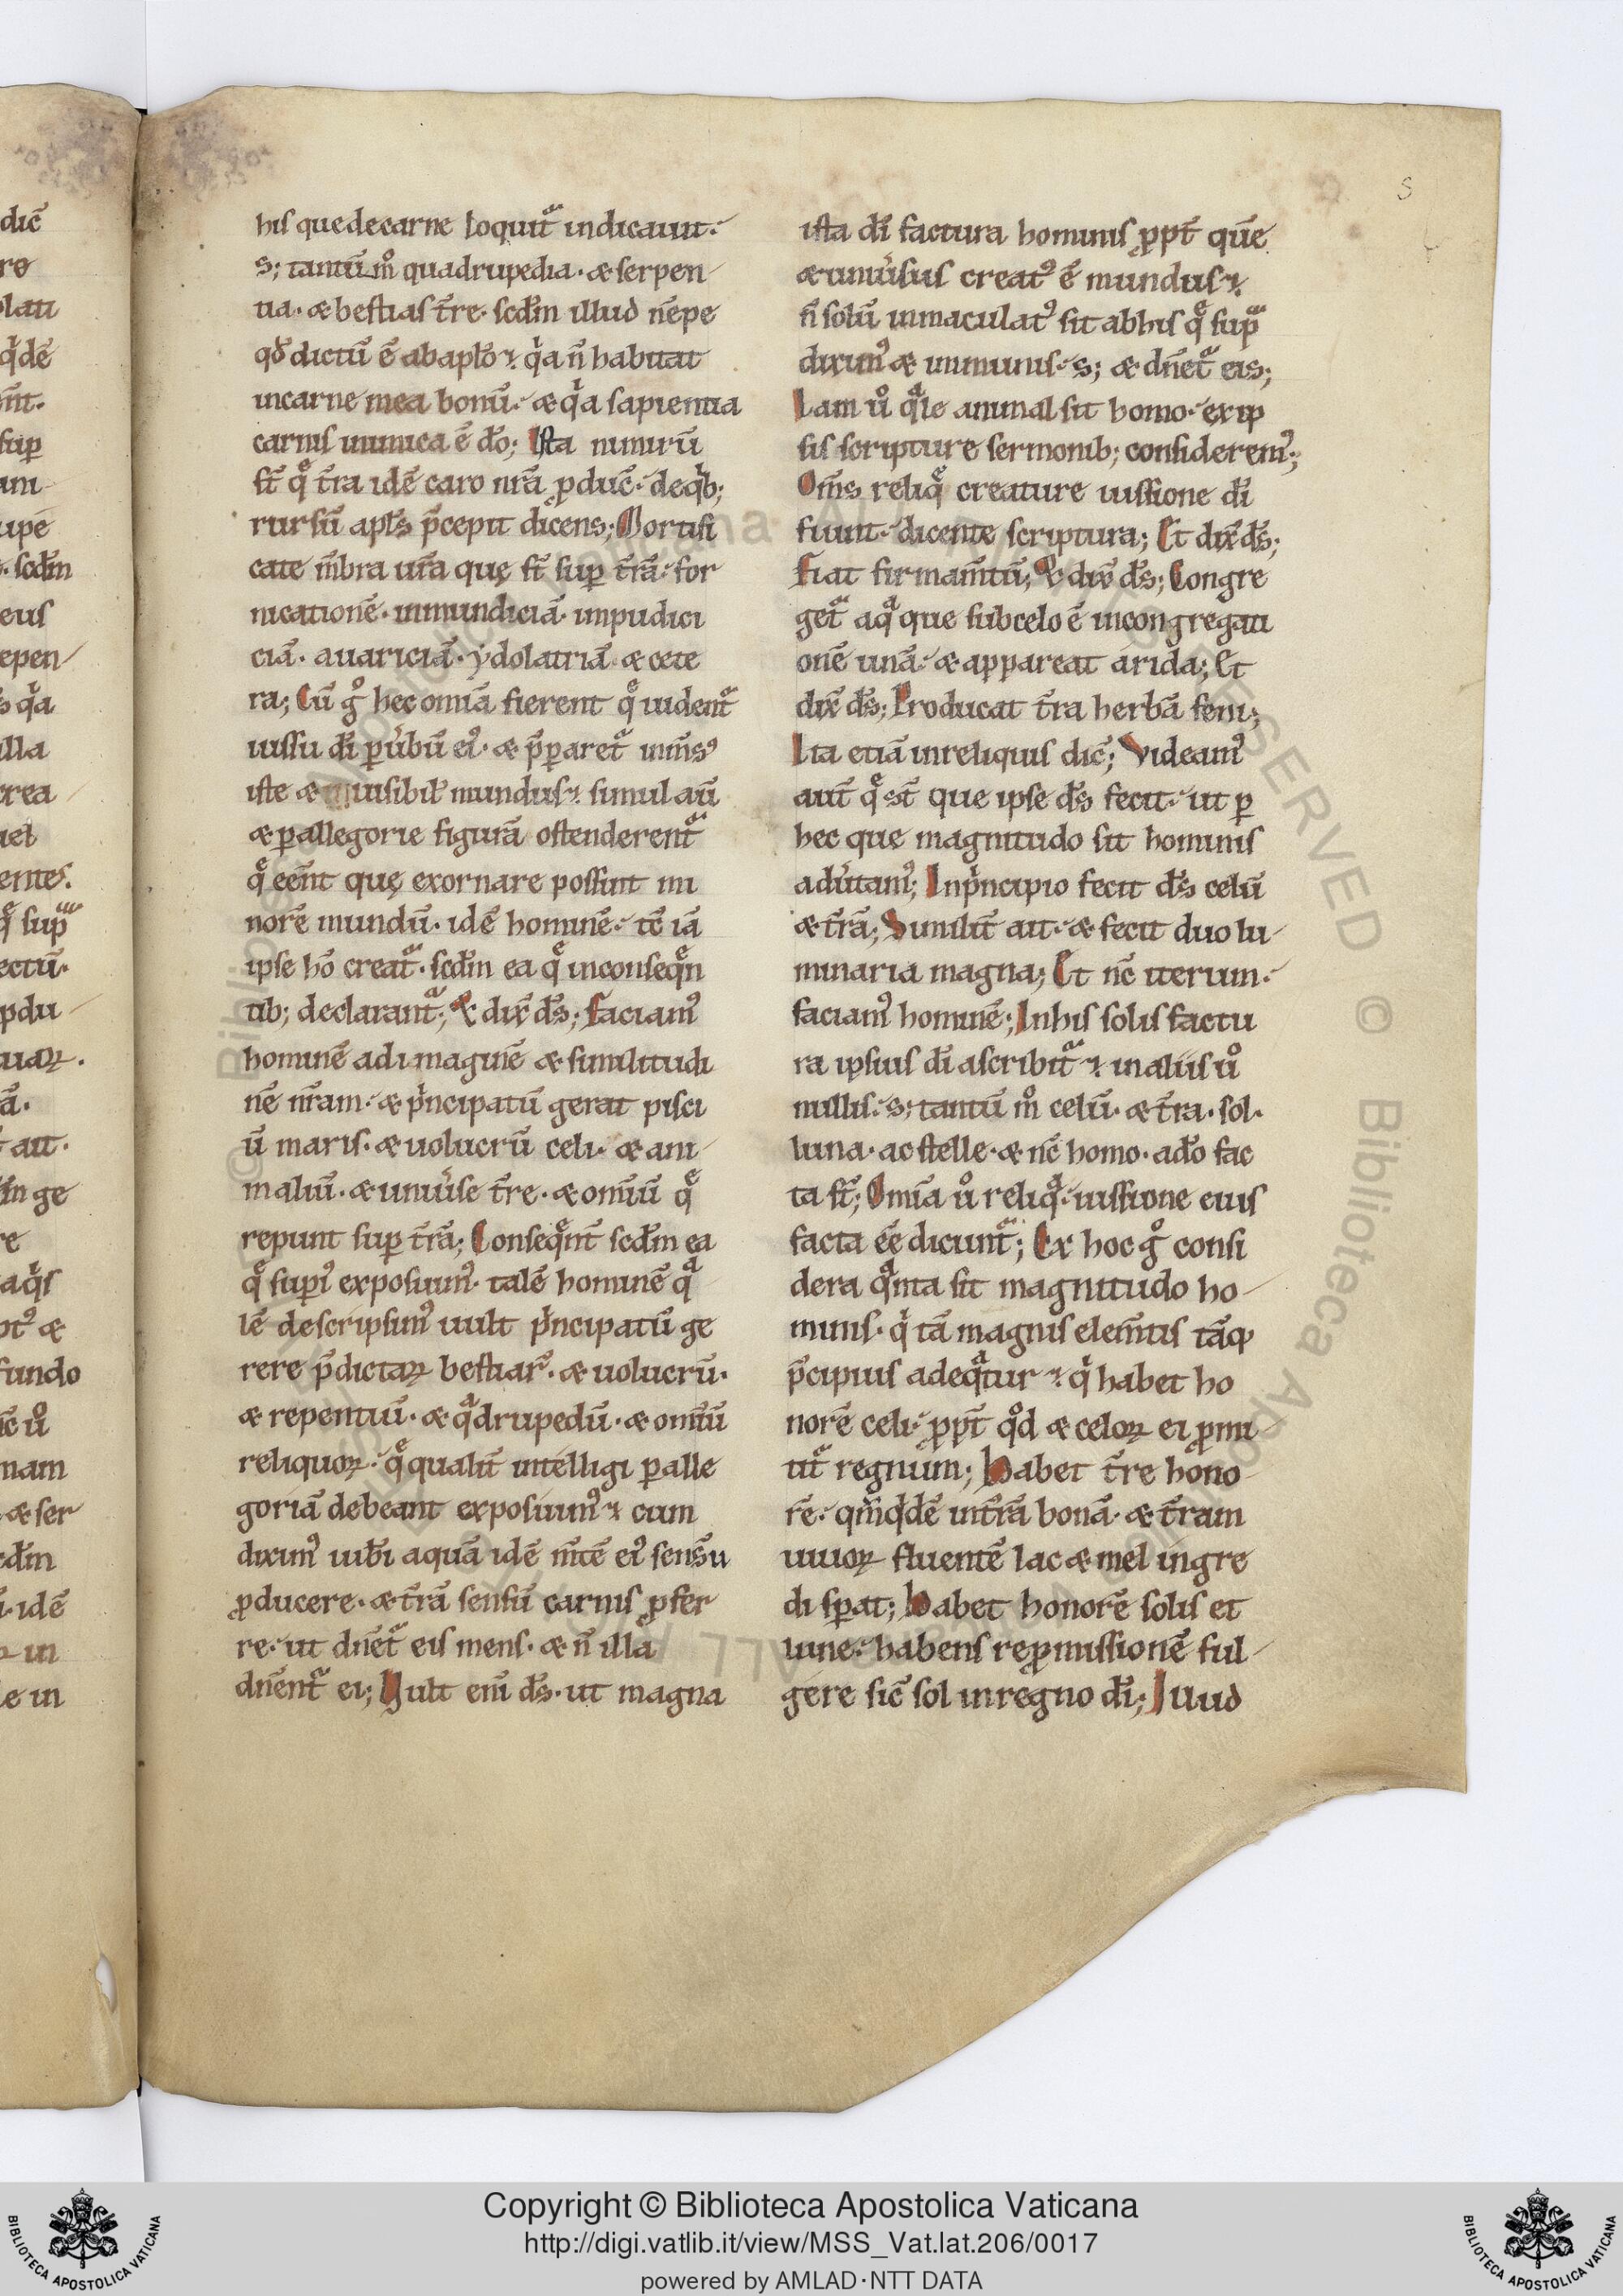 dic̄
re
lati
q̇dē
n̄t.
sup
ani
upe
. scd̄m
eus
epen
s q̇a
illa
rea
uel
entes.
sup
ectū.
pdu
uaꝝ.
ā.
aut.
in ge
re
aq̇s
pt᷒ æ
fundo
ic̄ u̇
nam
æ ser
cd̄m
i. idē
in
le in
his que de carne loquit᷑ indicauit.
s; tantū m̊ quadrupedia. æ serpen
tia. æ bestias t̄re. scd̄m illud nēpe
qđ dictū ē ab aplō. q̇a n̄ habitat
in carne mea bonū. æ q̇a sapientia
carnis inimica ē dō; Ista nimirū
st̄ q̄ t̄ra idē caro nr̄a ꝓduc̄. de qb;
rursū apls̄ p̄cepit dicens; Mortifi
cate m̄bra ur̄a quę st̄ suꝑ t̄rā. for
nicationē. inmundiciā. impudici
ciā. auariciā. ydolatriā æ cete
ra; Cū g̊ hęc om̄ia fierent q̄ uident᷑
iussu dī ꝑ u̇bū ei᷒. æ p̄pararet᷑ inm̄s᷒
iste æ uisibil̄ mundus. simul aū
æ ꝑ allegorie figurā ostenderent᷑
q̄ eēnt quę exornare possunt mi
norē mundū. idē hominē. tc̄ iā
ipse hō creat᷑. scd̄m ea q̄ in conseq̄n
tib; declarant᷑; Et dix̄ ds̄; Faciam᷒
hominē ad imaginē æ similitudi
nē nr̄am. æ pi̇ncipatū gerat pisci
ū maris. æ uolucrū celi. æ ani
maliū. æ uniu̇se t̄re. æ omīū q̄
repunt suꝑ t̄rā; Conseq̄nt̄ scd̄m ea
q̄ superi᷒ exposuim᷒. talē hominē qͣ
lē descripsim᷒ uult pi̇ncipatū ge
rere p̄dictaꝝ bestiaꝝ. æ uolucrū.
æ repentiū. æ qͣdrupedū. æ omīū
reliquoꝝ. q̄ qualit̄ intelligi ꝑ alle
goriā debeant exposuim᷒. cum
dixim᷒ iub̄i aquā idē m̄tē ei᷒ sensū
ꝓducere. æ t̄rā sensū carnis ꝓfer
re. ut dn̄et᷑ eis mens. æ n̄ illa
dn̄ent᷑ ei; Uult enī ds̄. ut magna
ista dī factura hominis ꝓpt̄ quē
æ uniu̇sus creat᷒ ē mundus.
n̄ solū inmaculat᷒ sit ab his q̄ supͣ
dixim᷒ æ inmunis. s; æ dn̄et᷑ eis;
Iam u̇ qͣle animal sit homo. ex ip
sis scripture sermonib; considerem᷒;
Om̄s reliq̄ creature iussione dī
fiunt. dicente scriptura; Et dix̄ ds̄;
Fiat firmam̄tū; Et dix̄ ds̄; Congre
get᷑ aqͣ que sub celo ē in congregati
onē unā. æ appareat arida; Et
dix̄ ds̄; Producat t̄ra herbā feni;
Ita etiā in reliquis dic̄; Videam᷒
aut̄ q̄ st̄ que ipse ds̄ fecit. ut ꝑ
hec que magnitudo sit hominis
adu̇tam᷒; In pi̇ncipio fecit ds̄ celū
æ t̄rā; Similit̄ ait. æ fecit duo lu
minaria magna; Et nc̄ iterum.
faciam᷒ hominē; In his solis factu
ra ipsius dī ascribit᷑. in aliis u̇
nullis. s; tantū m̊ celū. æ t̄ra. sol.
luna. ac stelle. æ nc̄ homo. a dō fac
ta st̄; Om̄ia u̇ reliqͣ. iussione eius
facta eē dicunt᷑; Ex hoc g̊ consi
dera qͣnta sit magnitudo ho
minis. q̇ tā magnis elem̄tis tāqͣ
p̄cipuis adeqͣtur. q̇ habet ho
norē celi. ꝓpt̄ q̊d æ celoꝝ ei ꝓmi
tit᷑ regnum; Habet t̄re hono
rē. qm̄ q̇dē in t̄rā bonā. æ t̄ram
uiuoꝝ fluentē lac æ mel ingre
di sꝑat; Habet honorē solis et
lune. habens reꝓmissionē ful
gere sic̄ sol in regno dī; Illud
5
Copyright © Biblioteca Apostolica Vaticana
http://digi.vatlib.it/view/MSS_Vat.lat.206/0017
powered by AMLAD·NTT DATA
BIBLIOTECA APOSTOLICA VATICANA
BIBLIOTECA APOSTOLICA VATICANA